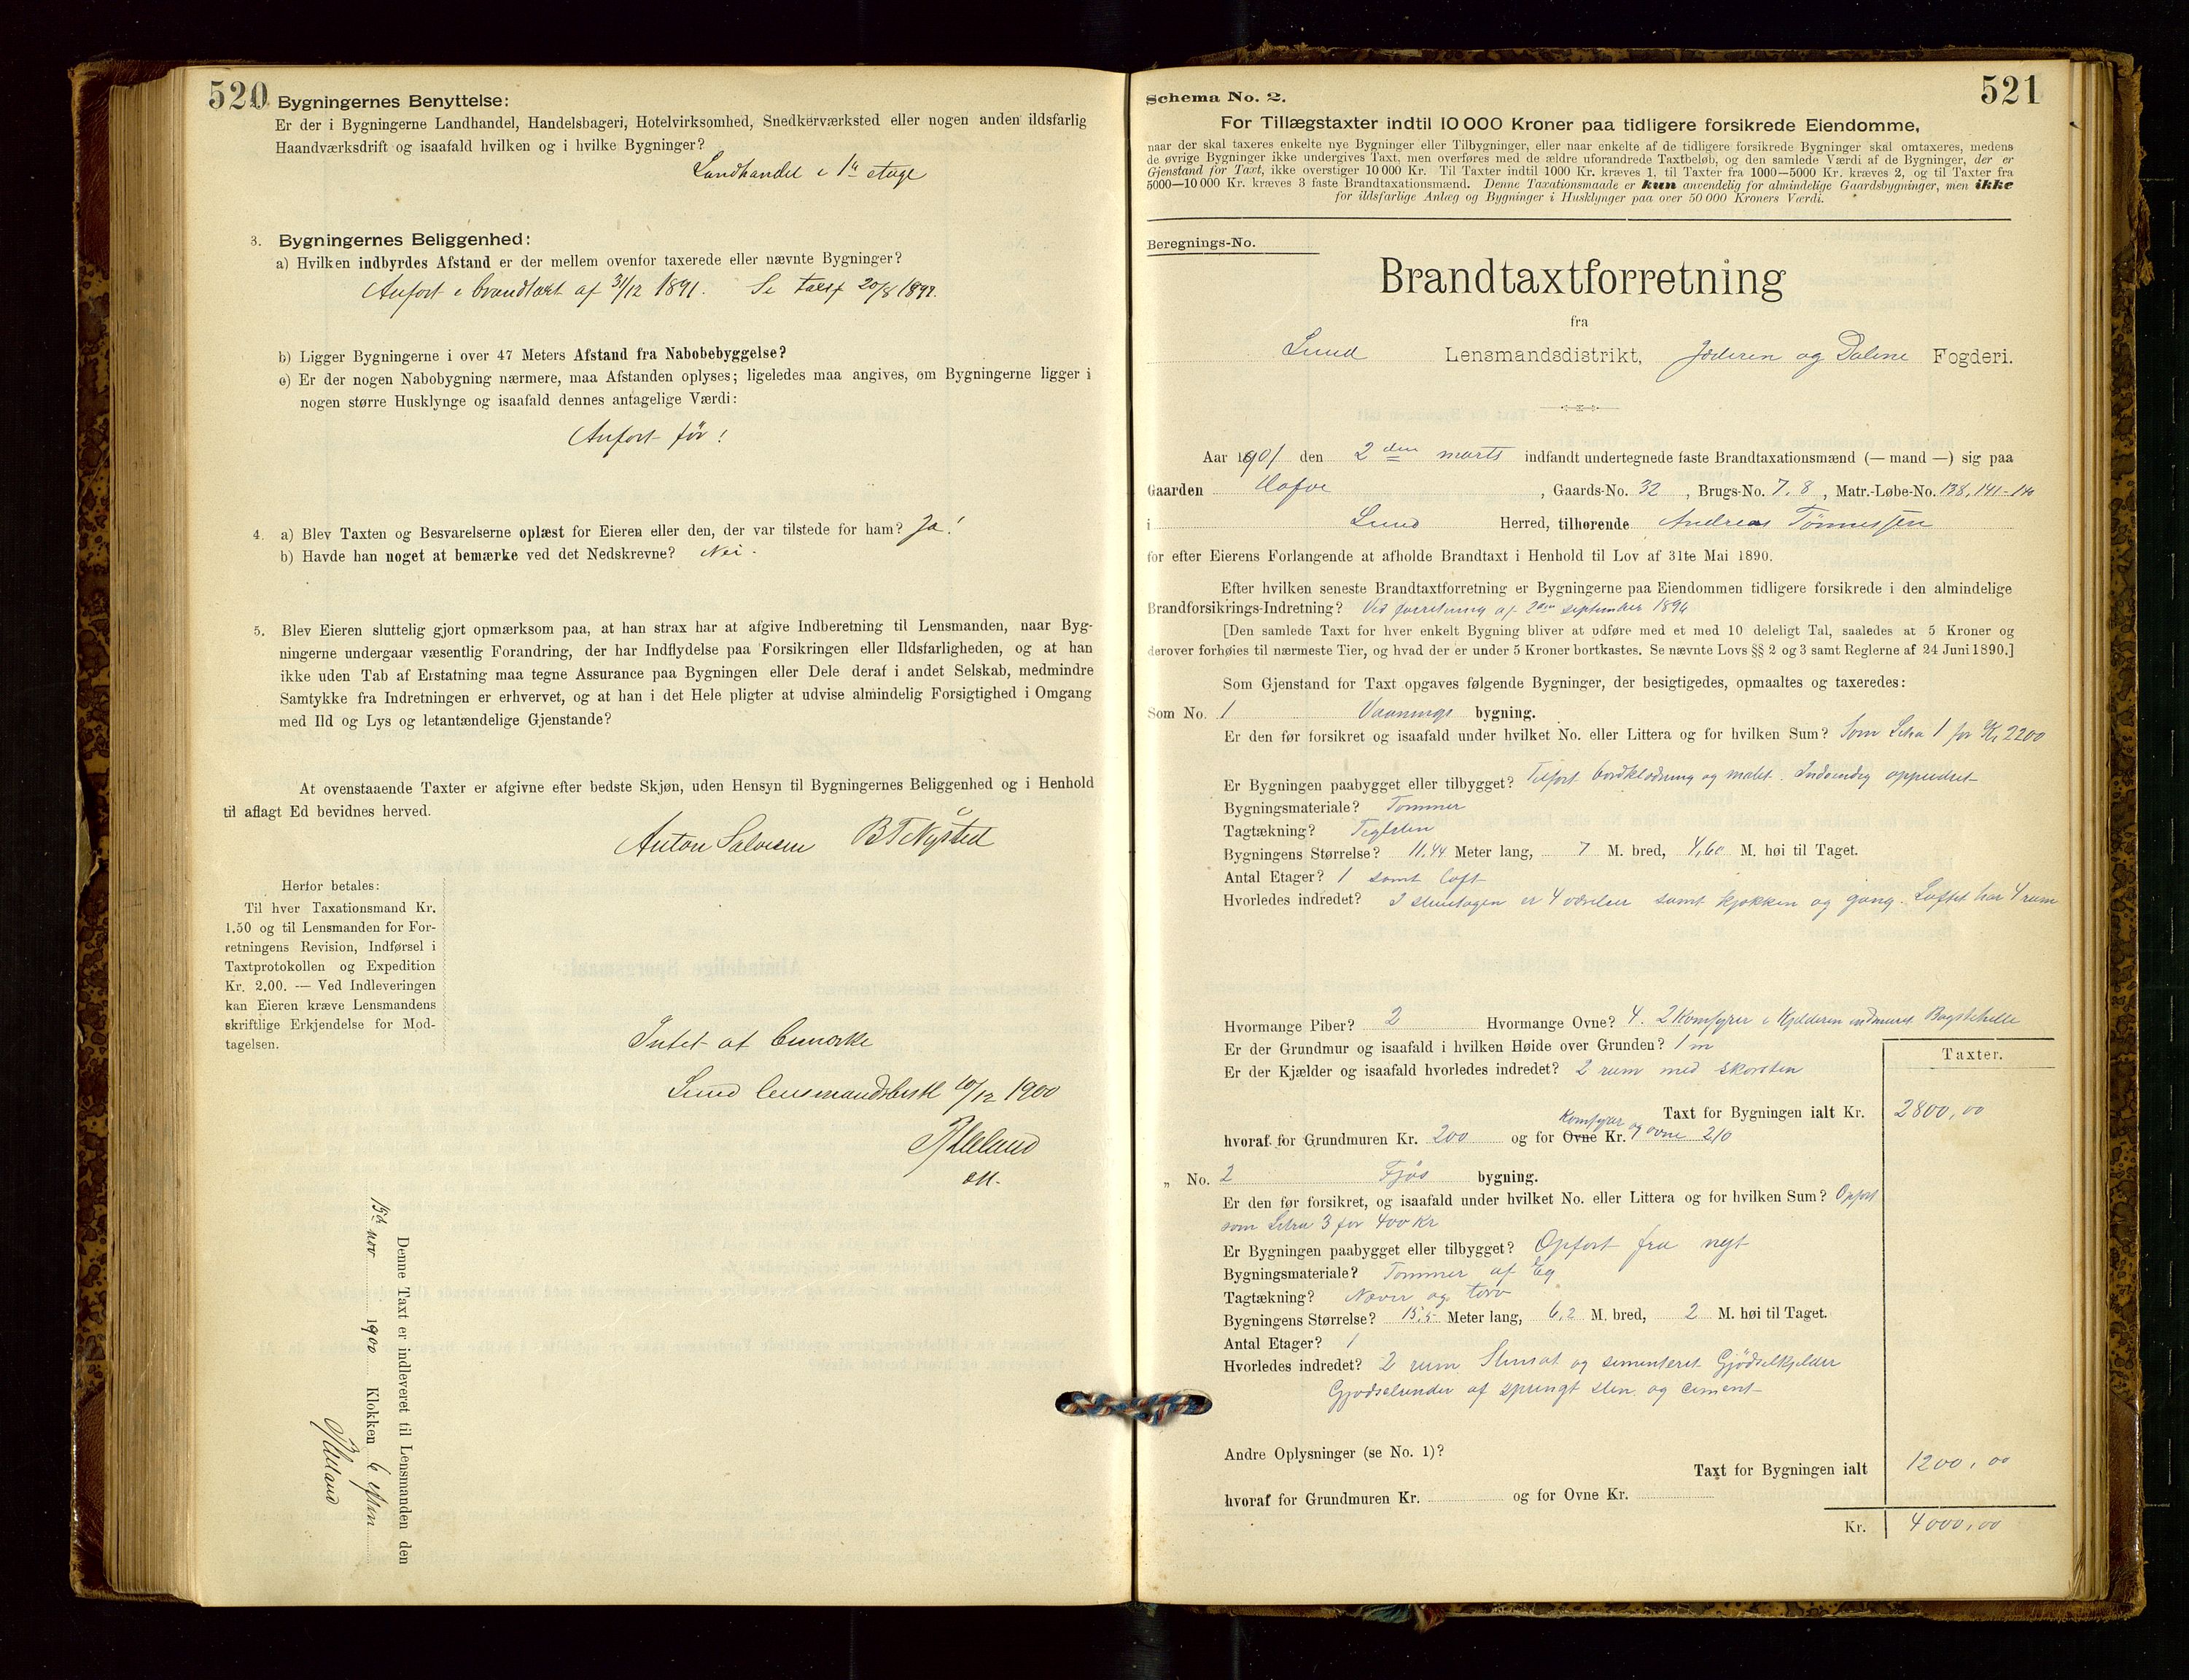 520 Bygningernes Benyttelse:
Er der i Bygningerne Landhandel, Handelsbageri, Hotelvirksomhed, Snedkerværksted eller nogen anden ildsfarlig
Haandværksdrift og isaafald hvilken og i hvilke Bygninger?
Landhandel i 1ª etage
3. Bygningernes Beliggenhed:
a) Hvilken indbyrdes Afstand er der mellem ovenfor taxerede eller nævnte Bygninger?
Anført i brandtaxt af 31/12 1891. Se taxt 20/8 1892.
b) Ligger Bygningerne i over 47 Meters Afstand fra Nabobebyggelse?
c) Er der nogen Nabobygning nærmere, maa Afstanden oplyses; ligeledes maa angives, om Bygningerne ligger i
nogen større Husklynge og isaafald dennes antagelige Værdi:
Anført før!
4. a) Blev Taxten og Besvarelserne oplæst for Eieren eller den, der var tilstede for ham? Ja!
b) Havde han noget at bemærke ved det Nedskrevne? Nei.
5. Blev Eieren sluttelig gjort opmærksom paa, at han strax har at afgive Indberetning til Lensmanden, naar Byg-
ningerne undergaar væsentlig Forandring, der har Indflydelse paa Forsikringen eller Ildsfarligheden, og at han
ikke uden Tab af Erstatning maa tegne Assurance paa Bygningen eller Dele deraf i andet Selskab, medmindre
Samtykke fra Indretningen er erhvervet, og at han i det Hele pligter at udvise almindelig Forsigtighed i Omgang
med Ild og Lys og letantændelige Gjenstande?
At ovenstaaende Taxter er afgivne efter bedste Skjøn, uden Hensyn til Bygningernes Beliggenhed og i Henhold
til aflagt Ed bevidnes herved.
Anton Salvesen B T Nysted
Herfor betales:
Til hver Taxationsmand Kr.
1.50 og til Lensmanden for For-
retningens Revision, Indførsel i
Taxtprotokollen og Expedition
Kr. 2.00. — Ved Indleveringen
kan Eieren kræve Lensmandens
skriftlige Erkjendelse for Mod-
tagelsen.
Intet at bemærke
Lund lensmandsbest 10/12 1900
Denne Taxt er indleveret til Lensmanden den
15de nov 1900 Klokken 6 eften
521
Schema No. 2.
For Tillægstaxter indtil 10 000 Kroner paa tidligere forsikrede Eiendomme,
naar der skal taxeres enkelte nye Bygninger eller Tilbygninger, eller naar enkelte af de tidligere forsikrede Bygninger skal omtaxeres, medens
de øvrige Bygninger ikke undergives Taxt, men overføres med de ældre uforandrede Taxtbeløb, og den samlede Værdi af de Bygninger, der er
Gjenstand for Taxt, ikke overstiger 10 000 Kr. Til Taxter indtil 1000 Kr. kræves 1, til Taxter fra 1000—5000 Kr. kræves 2, og til Taxter fra
5000—10 000 Kr. kræves 3 faste Brandtaxationsmænd. Denne Taxationsmaade er kun anvendelig for almindelige Gaardsbygninger, men ikke
for ildsfarlige Anlæg og Bygninger i Husklynger paa over 50 000 Kroners Værdi.
Beregnings-No.
Brandtaxtforretning
fra
Lund Lensmandsdistrikt, Jæderen og Dalene Fogderi.
Aar 1901 den 2den marts indfandt undertegnede faste Brandtaxationsmænd (— mand —) sig paa
Gaarden Hafve, Gaards-No. 32, Brugs-No. 7, 8, Matr.-Løbe-No. 138, 141
i Lund Herred, tilhørende Andreas Tønnessen
for efter Eierens Forlangende at afholde Brandtaxt i Henhold til Lov af 31te Mai 1890.
Efter hvilken seneste Brandtaxtforretning er Bygningerne paa Eiendommen tidligere forsikrede i den almindelige
Brandforsikrings-Indretning? Ved forretning af 2den september 1894
[Den samlede Taxt for hver enkelt Bygning bliver at udføre med et med 10 deleligt Tal, saaledes at 5 Kroner og
derover forhøies til nærmeste Tier, og hvad der er under 5 Kroner bortkastes. Se nævnte Lovs §§ 2 og 3 samt Reglerne af 24 Juni 1890.]
Som Gjenstand for Taxt opgaves følgende Bygninger, der besigtigedes, opmaaltes og taxeredes:
Som No. 1 Vaanings bygning.
Er den før forsikret og isaafald under hvilket No. eller Littera og for hvilken Sum? Som Litra 1 for Kr 2200
Er Bygningen paabygget eller tilbygget? Tilført bordklædning og malet. Indvendig oppudset
Bygningsmateriale? Tømmer
Tagtækning? Teglsten
Bygningens Størrelse? 11,44 Meter lang, 7 M. bred, 4,60 M. høi til Taget.
Antal Etager? 1 samt loft
Hvorledes indredet? I stuetagen er 4 værelser samt kjøkken og gang. Loftet har 4 rum
Hvormange Piber? 2 Hvormange Ovne? 4. 2 Komfyrer i Kjelderen indmuret Bagstehelle
Er der Grundmur og isaafald i hvilken Høide over Grunden? 1 m
Er der Kjælder og isaafald hvorledes indredet? 2 rum med skorsten
Taxter.
Taxt for Bygningen ialt Kr. 2800,00
hvoraf for Grundmuren Kr. 200 og for Ovne Kr. Komfyrer og ovne 210
„ No. 2 Fjøs bygning.
Er den før forsikret, og isaafald under hvilket No. eller Littera og for hvilken Sum? Opført
som Litra 3 for 400 Kr
Er Bygningen paabygget eller tilbygget? Opført fra nyt
Bygningsmateriale? Tømmer af Eg
Tagtækning? Næver og torv
Bygningens Størrelse? 15,5 Meter lang, 6,2 M. bred, 2 M. høi til Taget.
Antal Etager? 1
Hvorledes indredet? 2 rum Stensat og sementeret Gjødselkjelder
Gjødselrender af sprengt sten og cement
Andre Oplysninger (se No. 1)?
Taxt for Bygningen ialt 1200,00
hvoraf for Grundmuren Kr. og for Ovne Kr.
Kr. 4000,00